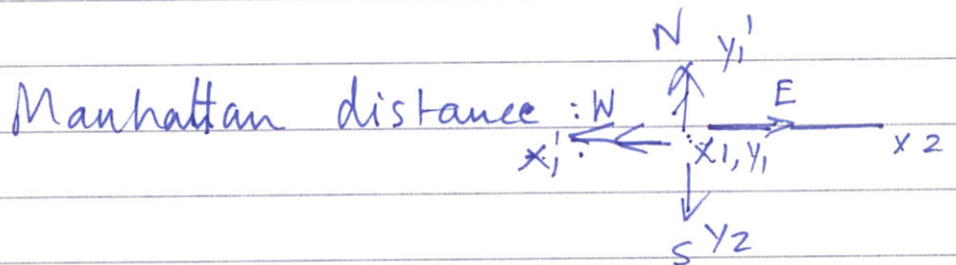 N y₁'
Manhattan distance : W E
x₁' x1, y₁ x2
S y2